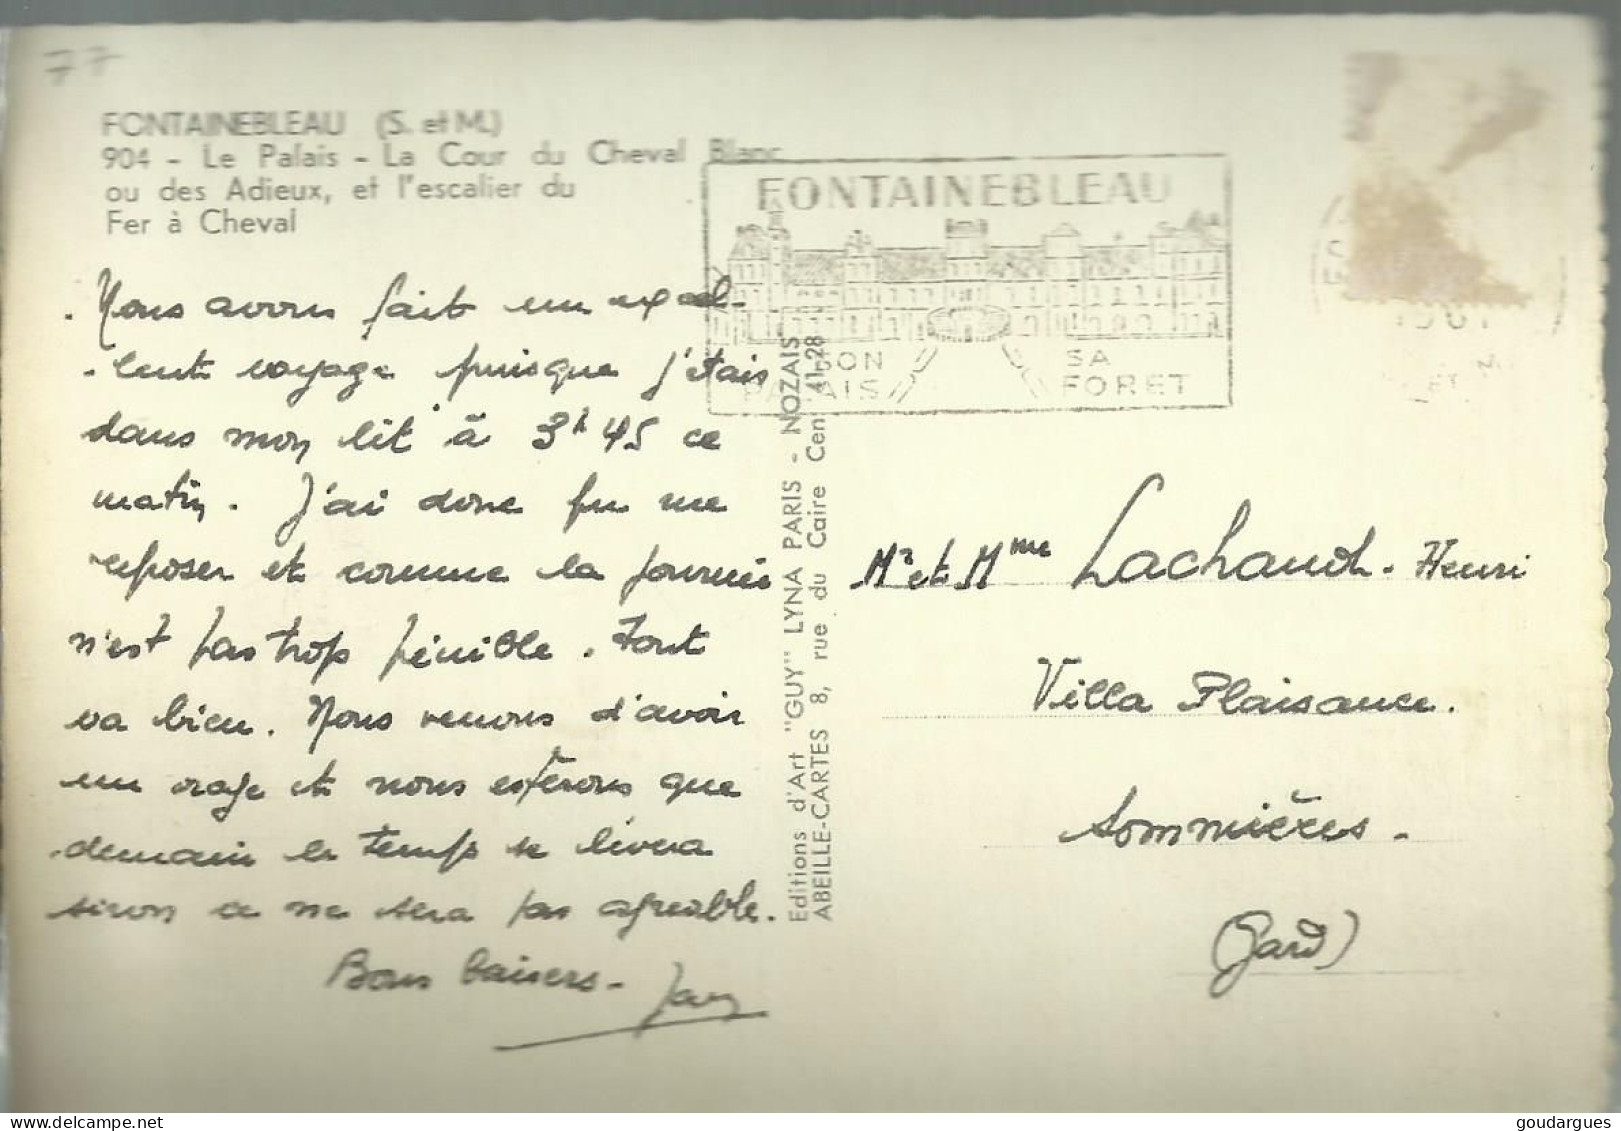 77
FONTAINEBLEAU (S. et M.)
904 - Le Palais - La Cour du Cheval Blanc
ou des Adieux, et l'escalier du
Fer à Cheval
FONTAINEBLEAU
SON
PALAIS
SA
FORET
Nous avons fait un excel-
lent voyage puisque j'étais
dans mon lit à 3h 45 ce
matin. J'ai donc pu me
reposer et comme la journée
n'est pas trop pénible. Tout
va bien. Nous venons d'avoir
un orage et nous espérons que
demain le temps se lèvera
sinon ce ne sera pas agréable.
Bons baisers -
Editions d'Art "GUY" LYNA PARIS - NOZAIS
ABEILLE-CARTES 8, rue du Caire Cen 41-28
Mr et Mme Lachaud - Henri
Villa Plaisance.
Sommières -
(Gard)
goudargues - delcampe.net